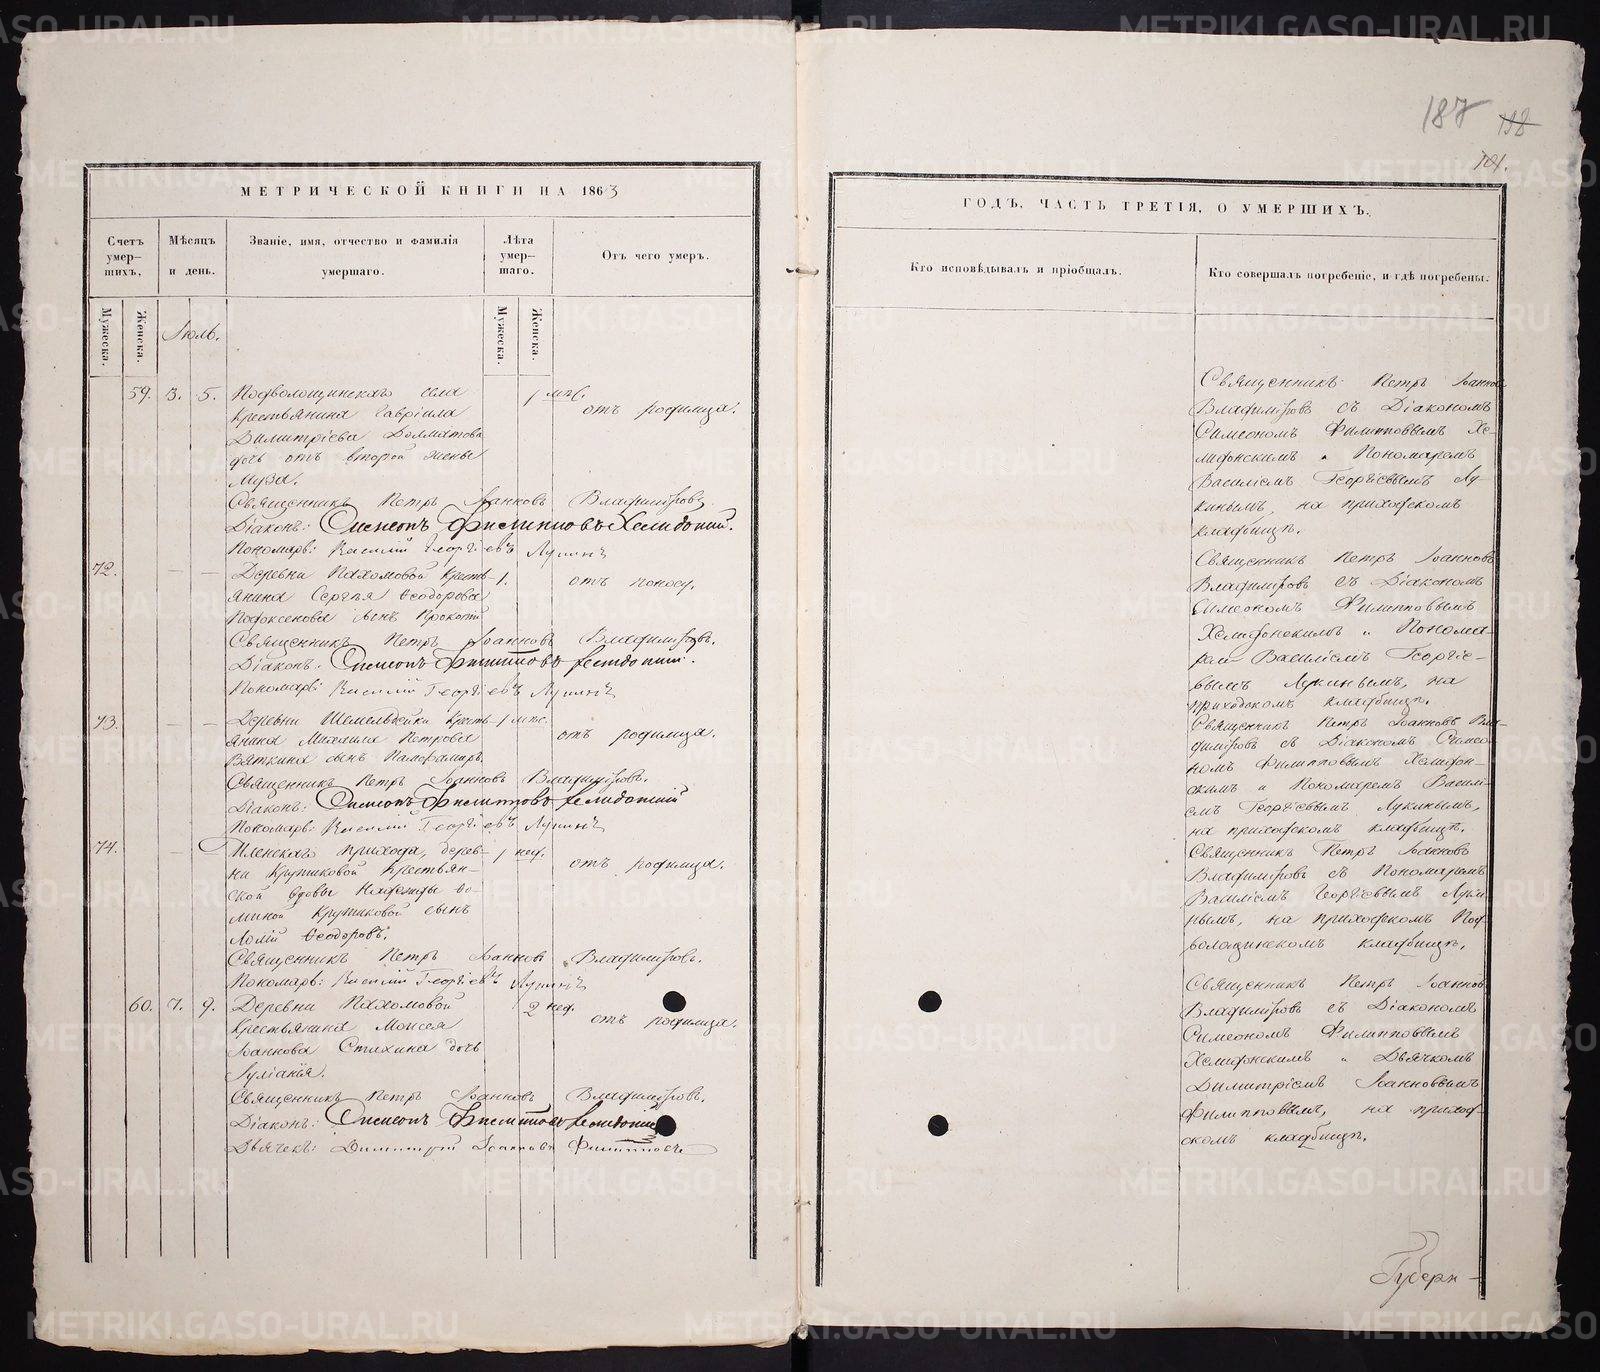 187 118
101.
МЕТРИЧЕСКОЙ КНИГИ НА 1863
Счетъ умер-
шихъ.
Мѣсяцъ
и день.
Званіе, имя, отчество и фамилія
умершаго.
Лѣта
умер-
шаго.
Отъ чего умеръ.
Мужеска.
Женска.
Іюль.
Мужеска.
Женска.
59. 3. 5. Подволошинскаго села 1 мѣс.
Крестьянина Гавріила отъ родимца.
Димитріева Долматова
дочь отъ второй жены
Муза.
Священникъ Петръ Іоанновъ Владиміровъ
Діаконъ: Симеонъ Филипповъ Хелидонскій.
Пономарь: Василій Георгіевъ Лукинъ
72. — — Деревни Пахомовой кресть- 1. отъ поносу.
янина Сергѣя Ѳеодорова
сынъ Прокопій
Священникъ Петръ Іоанновъ Владиміровъ.
Діаконъ: Симеонъ Филипповъ Хелидонскій.
Пономарь: Василій Георгіевъ Лукинъ
73. — — Деревни Шемелвейки кресть- 1 мѣс.
янина Михаила Петрова отъ родимца.
Вяткина сынъ
Священникъ Петръ Іоанновъ Владиміровъ.
Діаконъ: Симеонъ Филипповъ Хелидонскій
Пономарь: Василій Георгіевъ Лукинъ
74. — — Иленскаго прихода, дерев- 1 нед.
ни Крутиковой крестьян- отъ родимца.
ской вдовы Надежды Ѳо-
миной Крутиковой сынъ
Ѳеодоровъ.
Священникъ Петръ Іоанновъ Владиміровъ.
Пономарь: Василій Георгіевъ Лукинъ
60. 7. 9. Деревни Пахомовой 2 нед.
крестьянина Моисея отъ родимца.
Іоаннова Стяхина дочь
Іуліанія.
Священникъ Петръ Іоанновъ Владиміровъ.
Діаконъ: Симеонъ Филипповъ Хелидонскій
Дьячекъ: Димитрій Іоанновъ Филипповъ
ГОДЪ, ЧАСТЬ ТРЕТІЯ, О УМЕРШИХЪ.
Кто исповѣдывалъ и пріобщалъ.
Кто совершалъ погребеніе, и гдѣ погребены.
Священникъ Петръ Іоаннов
Владиміровъ съ Діакономъ
Симеономъ Филипповымъ Хе-
лидонскимъ и Пономаремъ
Василіемъ Георгіевымъ Лу-
кинымъ, на приходскомъ
кладбищѣ.
Священникъ Петръ Іоанновъ
Владиміровъ съ Діакономъ
Симеономъ Филипповымъ
Хелидонскимъ и Понома-
рем Василіемъ Георгіе-
вымъ Лукинымъ, на
приходскомъ кладбищѣ.
Священникъ Петръ Іоанновъ Вла-
диміровъ съ Діакономъ Симео-
номъ Филипповымъ Хелидон-
скимъ и Пономаремъ Васили-
емъ Георгіевымъ Лукинымъ,
на приходскомъ кладбищѣ.
Священникъ Петръ Іоанновъ
Владиміровъ съ Пономаремъ
Василіемъ Георгіевымъ Луки-
нымъ, на приходскомъ Под-
волошинскомъ кладбищѣ.
Священникъ Петръ Іоаннов
Владиміровъ съ Діакономъ
Симеономъ Филипповымъ
Хелидонскимъ и Дьячкомъ
Димитріемъ Іоанновымъ
Филипповымъ, на приход-
скомъ кладбищѣ.
Губерн-